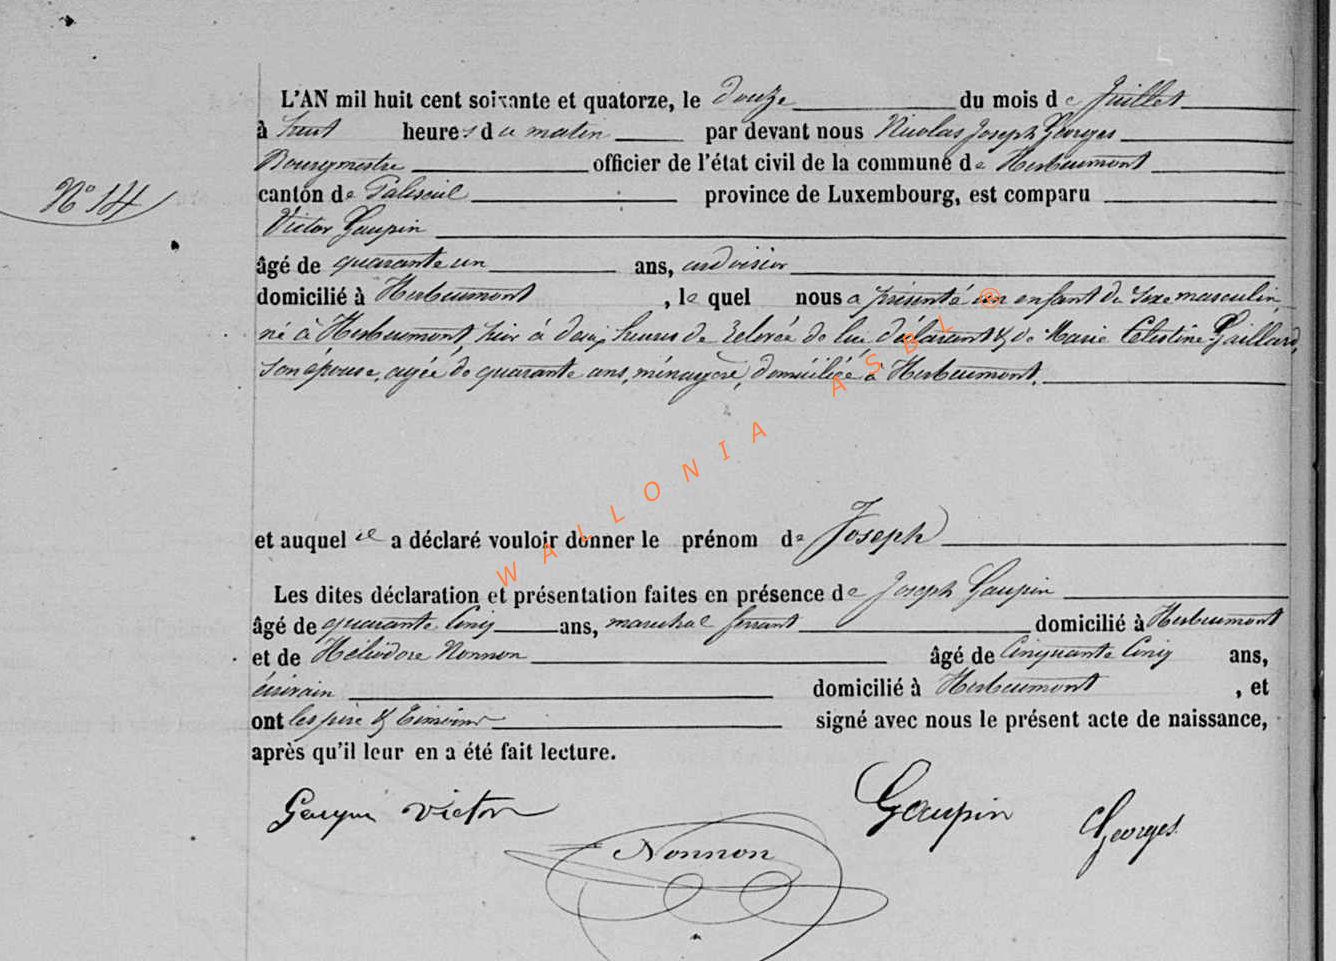 L'AN mil huit cent soixante et quatorze, le douze du mois de Juillet
à huit heures du matin par devant nous Nicolas Joseph Georges
Bourgmestre officier de l'état civil de la commune de Herbeumont
N° 14
canton de Paliseul province de Luxembourg, est comparu
Victor Gaupin
âgé de quarante un ans, ardoisier
domicilié à Herbeumont, lequel nous a présenté un enfant du sexe masculin
né à Herbeumont, hier à deux heures de relevée de lui déclarant & de Marie Célestine Gaillard,
son épouse, agée de quarante ans, ménagère, domiciliée à Herbeumont.
et auquel il a déclaré vouloir donner le prénom de Joseph
Les dites déclaration et présentation faites en présence de Joseph Gaupin
âgé de quarante cinq ans, maréchal ferrant domicilié à Herbeumont
et de Héliodore Nonnon âgé de cinquante cinq ans,
écrivain domicilié à Herbeumont, et
ont les père & témoins signé avec nous le présent acte de naissance,
après qu'il leur en a été fait lecture.
Gaupin Victor Gaupin Georges
Nonnon
WALLONIA ASBL ®